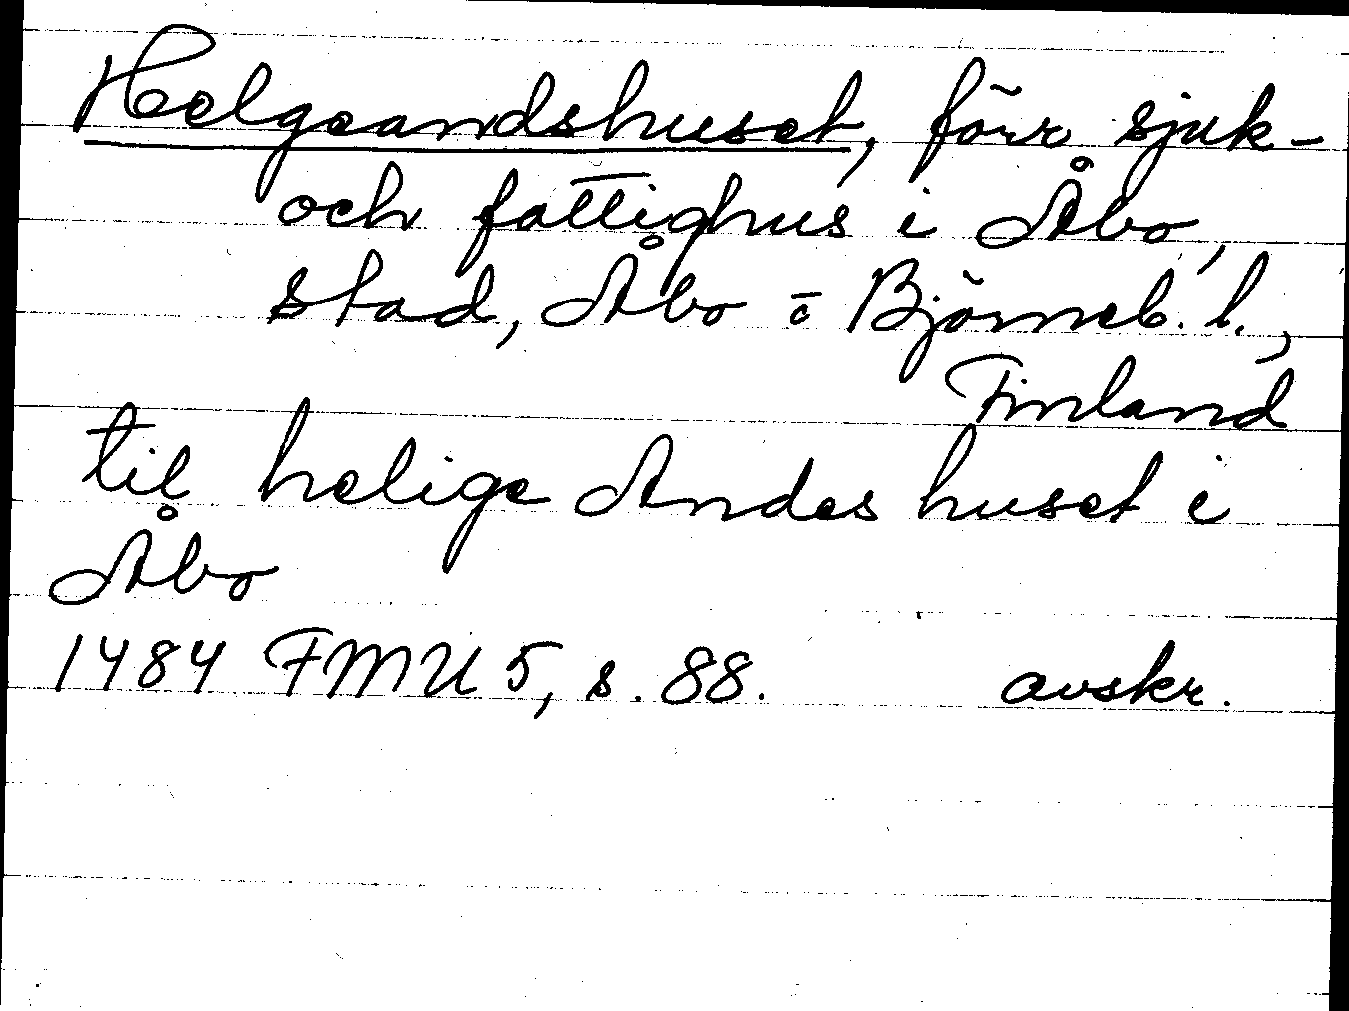 Helgeandshuset, förr sjuk-
och fattighus i Åbo,
stad, Åbo o Björneb. l.,
Finland
til helige Andes huset i
Åbo
1484 FMU 5, s. 88. avskr.